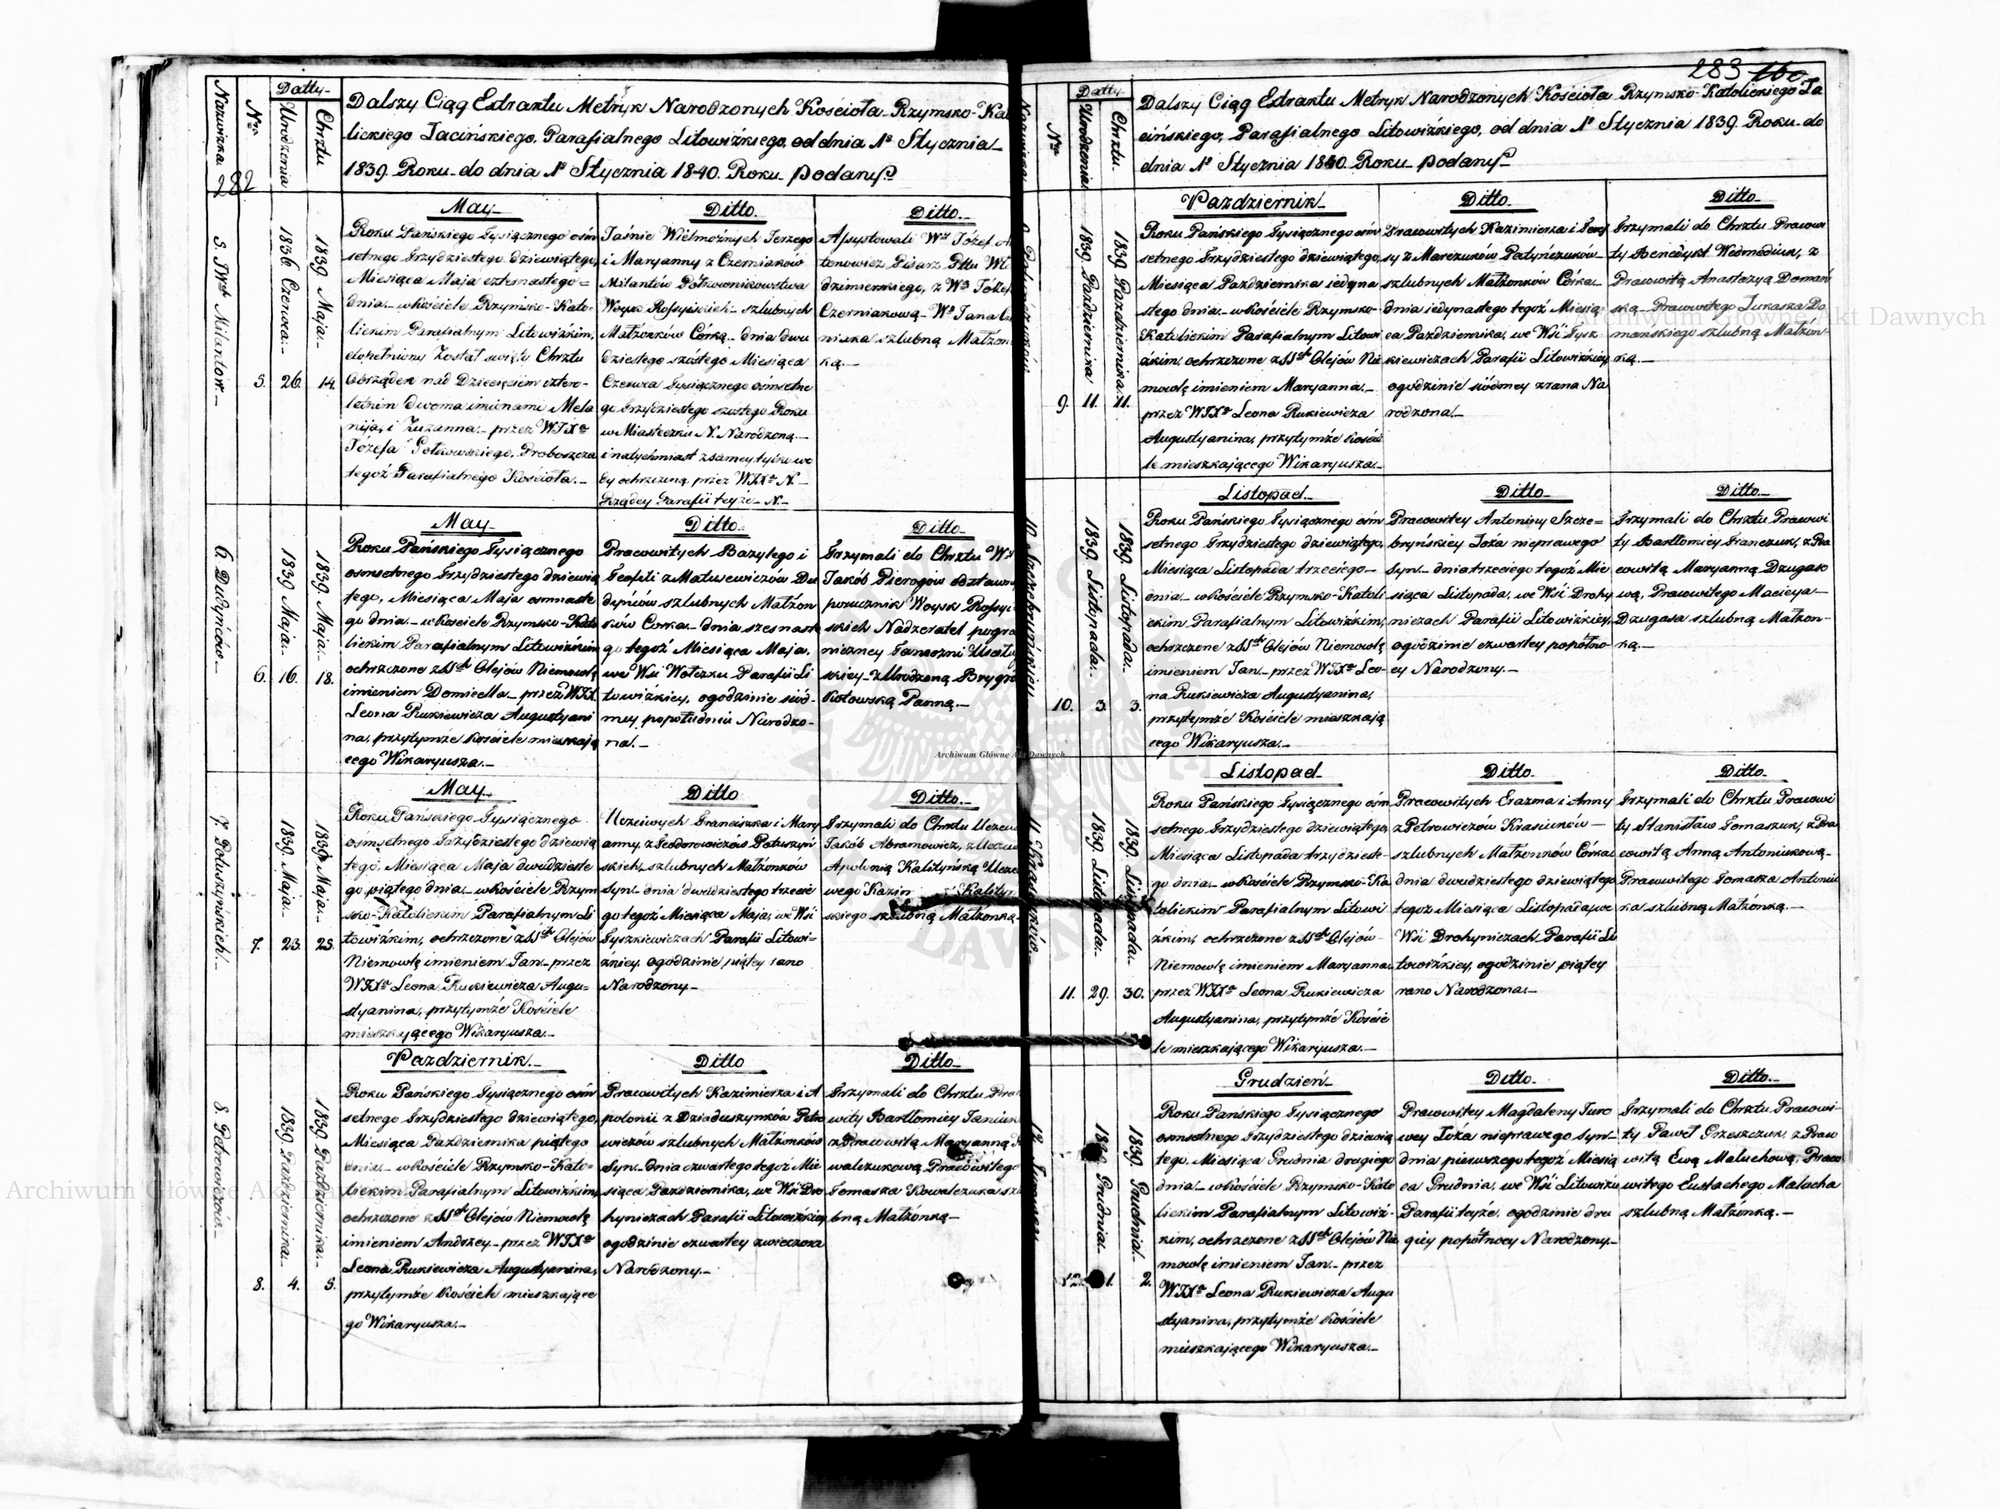 Nazwiska
Nro
Datty
Urodzenia
Chrztu
282
Dalszy Ciąg Extraktu Metryk Narodzonych Kościoła Rzymsko-Kat
lickiego Łacińskiego, Parafialnego Litowiżkiego, od dnia 1o Stycznia
1839. Roku do dnia 1o Stycznia 1840. Roku podany.
5. JWch Milantow.
5.
1836 Czerwca. 26.
1839. Maja. 14.
May
Roku Pańskiego Tysiącznego ośm
setnego Trzydziestego dziewiątego,
Miesiąca Maja czternastego
dnia w kościele Rzymsko-Kato-
lickim Parafialnym Litowiżkim,
dopełniony Został święty Chrztu
Obrządek nad Dziecięciem cztero-
letnim dwoma imionami Mela
nija, i Zuzanna przez WJX
Józefa Proboszcza
tegoż Parafialnego Kościoła.
Ditto.
Jaśnie Wielmożnych Jerzego
i Maryanny z Czerniaków
Milantów Półkownikowstwa
Woysk Rossyiskich szlubnych
Małżonków Córką dnia dwu
dziestego szóstego Miesiąca
Czerwca Tysiącznego ośmsetne
go Trzydziestego szóstego Roku
w Miasteczku N. Narodzoną
i natychmiast z samey tylko wo
dy ochrzczoną przez WJX N.
Rządcy Parafii teyże N.
Ditto.
Assystowali W. Józef An
tonowicz Pisarz Pttu Wł
dzimierskiego, z W Józef
Czerniakową W Jana Cz
niaka szlubną Małżon
ką.
6. Dudyńców.
6.
1839. Maja. 16.
1839. Maja. 18.
May
Roku Pańskiego Tysiącznego
ośmsetnego Trzydziestego dziewią
tego, Miesiąca Maja ośmnaste
go dnia w kościele Rzymsko-Kato
lickim Parafialnym Litowiżkim
ochrzczone z SSch Olejów Niemowlę
imieniem Domicella przez WJX
Leona Rukiewicza Augustyani
na, przytymże kościele mieszkają
cego Wikaryusza.
Ditto.
Pracowitych Bazylego i
Teofili z Matusewiczów Du
dyńców szlubnych Małżon
ków Córka dnia szesnaste
go tegoż Miesiąca Maja,
we Wsi Wołczku Parafii Li
towiżkiey, o godzinie siód-
mey popołudniu Narodzo-
na.
Ditto
Trzymali do Chrztu W
Jakób Pierogow odstawn
porucznik Woysk Rossyi
skich Nadzeratel pogra
niczney Tamożni Uściłu
skiey z Urodzoną Brygi
Kotowską Panną.
7. Potuszyńskich.
7.
1839. Maja. 23.
1839. Maja. 25.
May.
Roku Pańskiego Tysiącznego
ośmsetnego Trzydziestego dziewią
tego, Miesiąca Maja dwudzieste
go piątego dnia w kościele Rzym
sko-Katolickim Parafialnym Li
towiżkim, ochrzczone z SSch Olejów
Niemowlę imieniem Jan przez
WJX Leona Rukiewicza Augu-
styanina, przytymże Kościele
mieszkającego Wikaryusza.
Ditto
Uczciwych Franciszka i Mary
anny z Teodorowiczów Potuszyń
skich szlubnych Małżonków
syn dnia dwudziestego trzecie
go tegoż Miesiąca Maja, we Wsi
Tyszkiewiczach Parafii Litowi-
żkiey, o godzinie piątey rano
Narodzony.
Ditto.
Trzymali do Chrztu Uczciw
Jakób Abramowicz, z Uczciw
Apolonią Kalityńską Uczci
wego Kazim Kalityń
skiego szlubną Małżonką.
8. Petrowiczów.
8.
1839. Października. 4.
1839. Października. 5.
Pazdziernik.
Roku Pańskiego Tysiącznego ośm
setnego Trzydziestego dziewiątego,
Miesiąca Października piątego
dnia w kościele Rzymsko-Kato-
lickim Parafialnym Litowiżkim,
ochrzczone z SSch Olejów Niemowlę
imieniem Andrzey przez WJX
Leona Rukiewicza Augustyanina,
przytymże kościele mieszkające
go Wikaryusza.
Ditto
Pracowitych Kazimierza i A
polonii z Dziaduszynków Petro
wiczów szlubnych Małżonków
Syn dnia czwartego tegoż Mie
siąca Października, we Wsi Dro
hyniczach Parafii Litowiżkiey
o godzinie czwartey z wieczora
Narodzony.
Ditto.
Trzymali do Chrztu Praco
wity Bartłomiey Janiuk
z Pracowitą Maryanną
walczukową Pracowitego
Tomasza Kowalczuka szl
bną Małżonką
283 160
Nazwiska
Nro
Datty
Urodzenia
Chrztu
Dalszy Ciąg Extraktu Metryk Narodzonych Kościoła Rzymsko-Katolickiego Ła
cińskiego, Parafialnego Litowiżkiego, od dnia 1o Stycznia 1839. Roku do
dnia 1o Stycznia 1840. Roku podany.
9.
1839. Października 11.
1839. Października. 11.
Pazdziernik
Roku Pańskiego Tysiącznego ośm
setnego Trzydziestego dziewiątego,
Miesiąca Października iedyna
stego dnia w kościele Rzymsko-
Katolickim Parafialnym Litowi
żkim, ochrzczone z SSch Olejów Nie
mowlę imieniem Maryanna.
przez WJX Leona Rukiewicza
Augustyanina, przytymże kości
le mieszkającego Wikaryusza.
Ditto.
Pracowitych Kazimierza i Tere
sy z Marczuków Patyńczuków
szlubnych Małżonków Córka
dnia iedynastego tegoż Miesią
ca Października, we Wsi Tysz
kiewiczach Parafii Litowiżkiey
o godzinie siódmey z rana Na
rodzona.
Ditto.
Trzymali do Chrztu Pracowi
ty Benedykt Wedmediuk, z
Pracowitą Anastazyą Domań
ską Pracowitego Łukasza Do
mańskiego szlubną Małżon-
ką.
10.
1839. Listopada. 3.
1839. Listopada. 3.
Listopad
Roku Pańskiego Tysiącznego ośm
setnego Trzydziestego dziewiątego,
Miesiąca Listopada trzeciego
dnia w kościele Rzymsko-Katoli
ckim Parafialnym Litowiżkim,
ochrzczone z SSch Olejów Niemowlę
imieniem Jan przez WJX Leo
na Rukiewicza Augustyanina,
przytymże Kościele mieszkają
cego Wikaryusza.
Ditto
Pracowitey Antoniny Szcze-
bryńskiey Łoża nieprawego
syn dnia trzeciego tegoż Mie
siąca Listopada, we Wsi Drohy
niczach Parafii Litowiżkiey,
o godzinie czwartey popołudni
ey Narodzony.
Ditto
Trzymali do Chrztu Pracowi
ty Bartłomiey Franczuk, z Pra
cowitą Maryanną Dzugaso
wą, Pracowitego Macieya
Dzugasa szlubną Małżon-
ką.
11. Krasiuków.
11.
1839. Listopada. 29.
1839. Listopada. 30.
Listopad
Roku Pańskiego Tysiącznego ośm
setnego Trzydziestego dziewiątego,
Miesiąca Listopada trzydzieste
go dnia w kościele Rzymsko-Ka
tolickim Parafialnym Litowi
żkim, ochrzczone z SSch Olejów
Niemowlę imieniem Maryanna
przez WJX Leona Rukiewicza
Augustyanina, przytymże Koście
le mieszkającego Wikaryusza.
Ditto
Pracowitych Erazma i Anny
z Petrowiczów Krasiuków
szlubnych Małżonków Córka
dnia dwudziestego dziewiątego
tegoż Miesiąca Listopada, we
Wsi Drohyniczach Parafii Li
towiżkiey, o godzinie piątey
rano Narodzona.
Ditto
Trzymali do Chrztu Pracowi
ty Stanisław Tomaszuk, z Pra
cowitą Anną Antoniukową
Pracowitego Tomasza Antoniu
ka szlubną Małżonką.
12.
12.
Grudnia. 1.
1839. Grudnia. 2.
Grudzień
Roku Pańskiego Tysiącznego
ośmsetnego Trzydziestego dziewią
tego, Miesiąca Grudnia drugiego
dnia w kościele Rzymsko-Kato
lickim Parafialnym Litowiż-
kim, ochrzczone z SSch Olejów Nie
mowlę imieniem Jan przez
WJX Leona Rukiewicza Augu
styanina, przytymże Kościele
mieszkającego Wikaryusza.
Ditto.
Pracowitey Magdaleny Turo
wey Łoża nieprawego Syn
dnia pierwszego tegoż Miesią
ca Grudnia, we Wsi Litowiżu
Parafii teyże, o godzinie dru
giey popółnocy Narodzony.
Ditto.
Trzymali do Chrztu Pracowi-
ty Paweł Grzeszczuk, z Praco
witą Ewą Maluchową, Praco
witego Eustachego Malucha
szlubną Małżonką.
Archiwum Główne Akt Dawnych
Archiwum Główne Akt Dawnych
Archiwum Główne Akt Dawnych